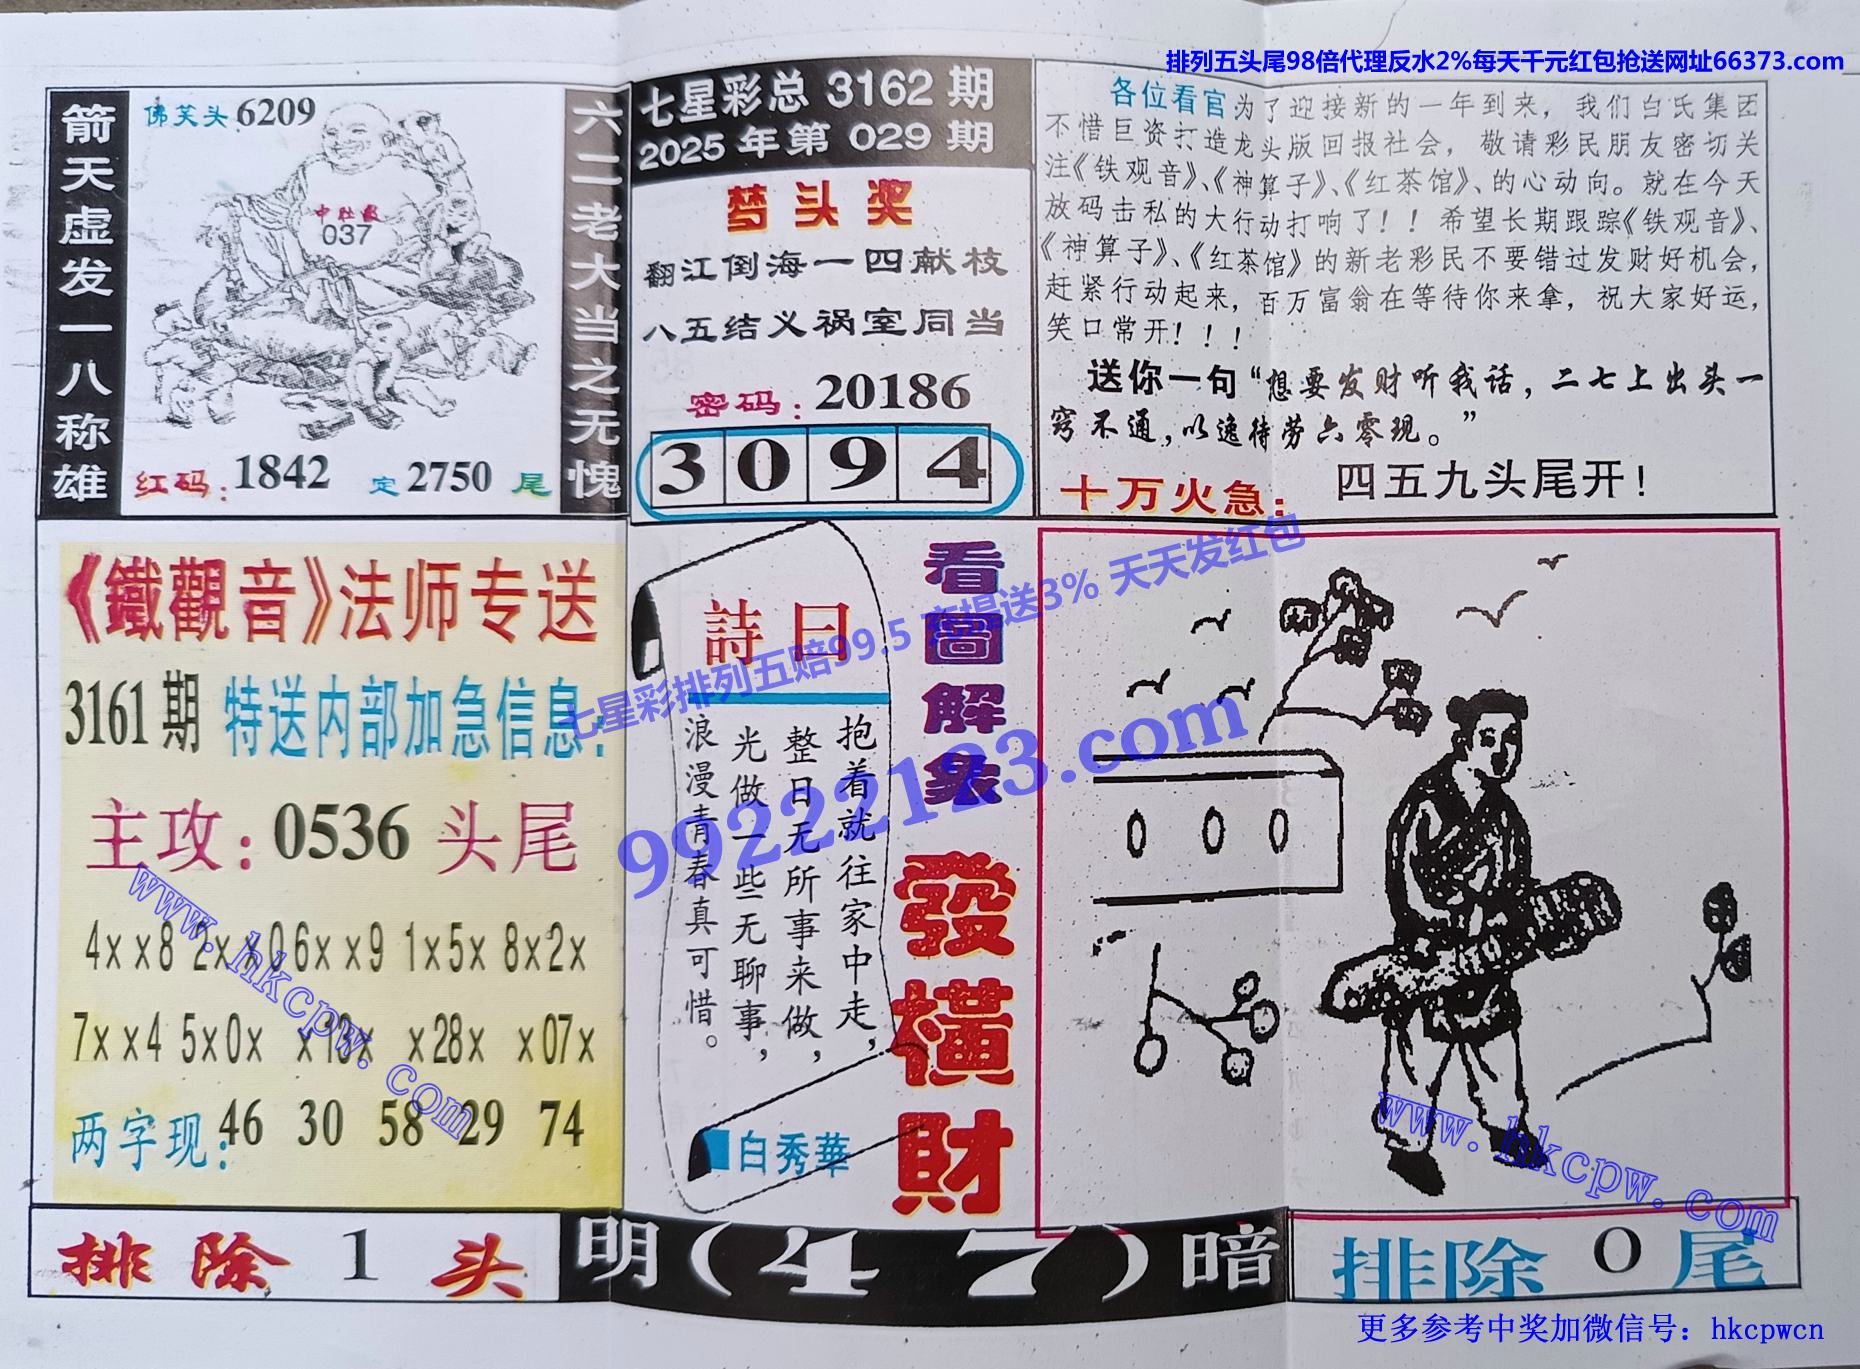 排列五头尾98倍代理反水2%每天千元红包抢送网址66373.com
箭天虚发一八称雄
佛笑头 6209
中肚数
037
红码：1842 定 2750 尾
六二老大当之无愧
七星彩总 3162 期
2025 年第 029 期
梦头奖
翻江倒海一四献枝
八五结义祸室同当
密码：20186
3 0 9 4
各位看官为了迎接新的一年到来，我们白氏集团
不惜巨资打造龙头版回报社会，敬请彩民朋友密切关
注《铁观音》、《神算子》、《红茶馆》、的心动向。就在今天
放码击私的大行动打响了！！希望长期跟踪《铁观音》、
《神算子》、《红茶馆》的新老彩民不要错过发财好机会，
赶紧行动起来，百万富翁在等待你来拿，祝大家好运，
笑口常开！！！
送你一句“想要发财听我话，二七上出头一
窍不通，以逸待劳六零现。”
十万火急：四五九头尾开！
《鐵觀音》法师专送
3161期 特送内部加急信息：
主攻：0536 头尾
4xx8 2xx0 6xx9 1x5x 8x2x
7xx4 5x0x x13x x28x x07x
两字现：46 30 58 29 74
詩曰
抱着就往家中走，
整日无所事来做，
光做一些无聊事，
浪漫青春真可惜。
白秀華
看圖解象
發橫財
七星彩排列五赔99.5 充提送3% 天天发红包
99222123.com
www.hkcpw.com
www.hkcpw.com
排除 1 头
明(4 7)暗
排除 0 尾
更多参考中奖加微信号：hkcpwcn